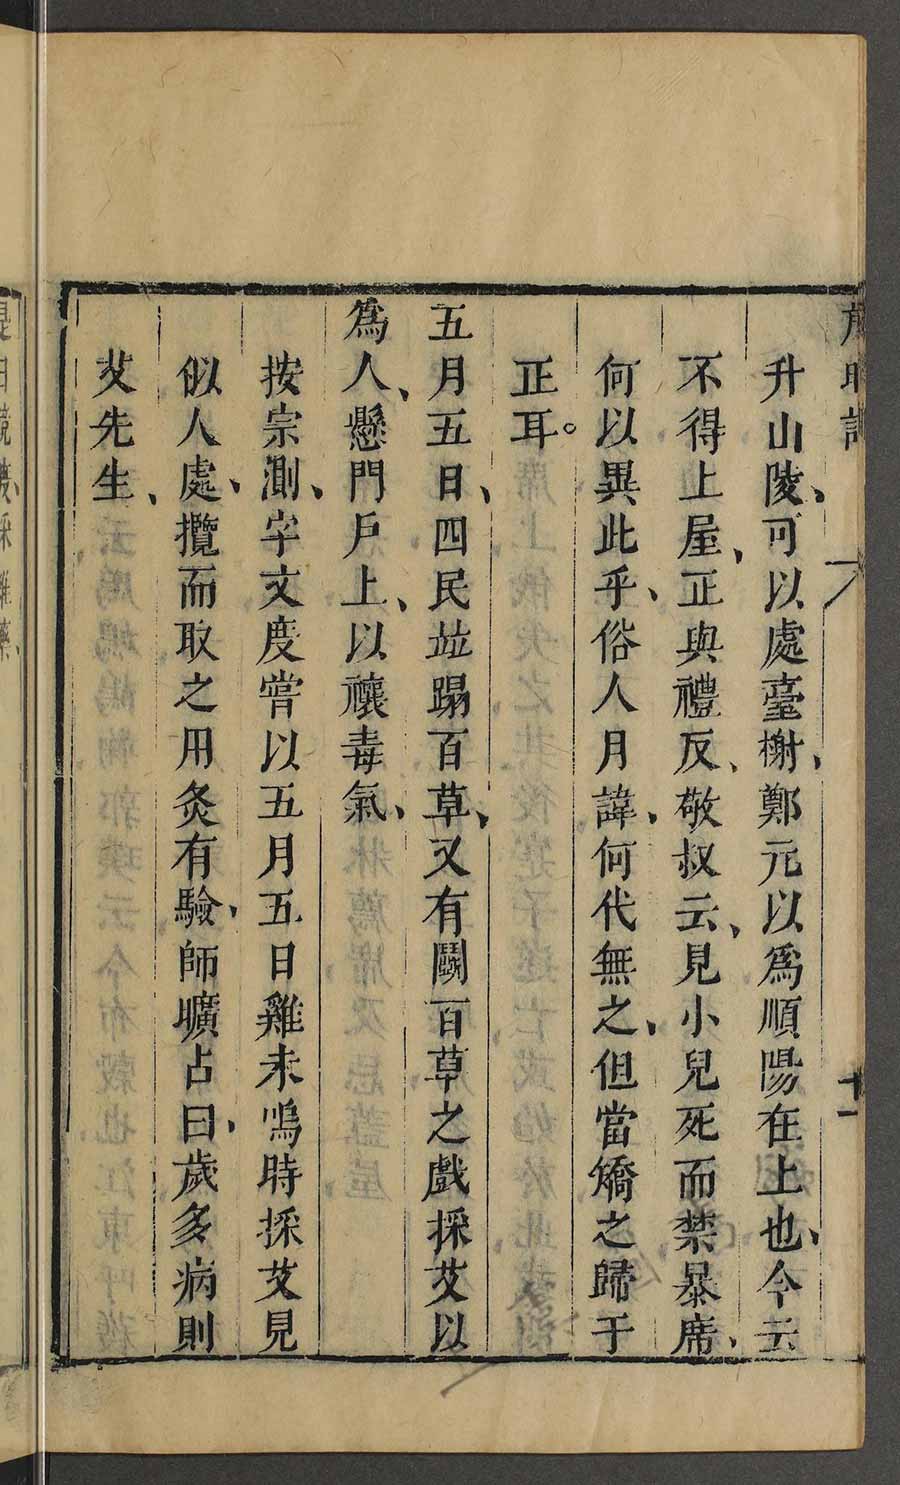 升山陵、可以處臺榭、鄭元以爲順陽在上也、今云
不得上屋、正與禮反、敬叔云、見小兒死而禁暴席、
何以異此乎、俗人月諱、何代無之、但當矯之歸于
正耳。
五月五日、四民竝蹋百草、又有鬭百草之戲採艾以
爲人、懸門戶上、以禳毒氣、
按宗測、字文度嘗以五月五日雞未鳴時採艾見
似人處、攬而取之用灸有驗、師曠占曰、歲多病則
艾先生、